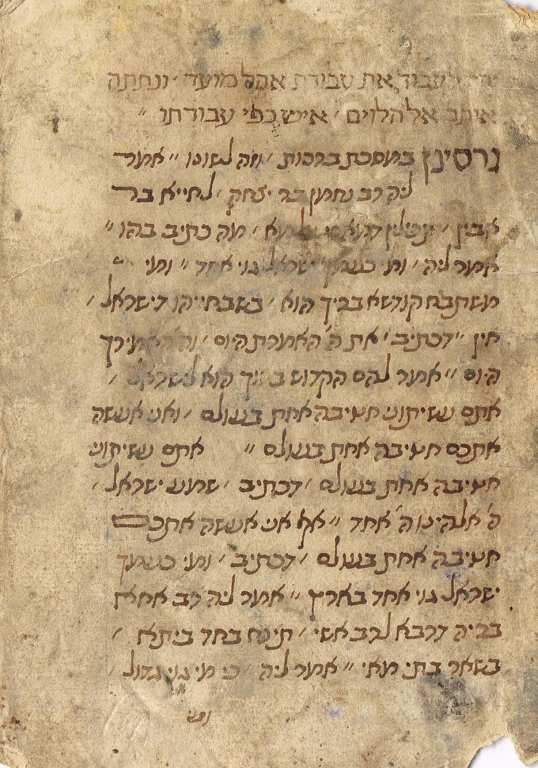 לעבוד את עבודת אהל מועד ׳ ונתתה
אותם אל הלוים ׳ איש כפי עבודתו ״
גרסינן במסכת ברכות ׳ וזה לשונו ״ אמר
ליה רב נחמן בר יצחק ׳ לחייא בר
אבין ׳ תפלין דמארי עלמא ׳ מה כתיב בהו ״
אמר ליה ׳ ומי כעמך ישראל גוי אחד ״ ומי
משתבח קודשא בריך הוא ׳ בשבחייהו דישראל ׳
אין ״ דכתיב ׳ את ה׳ האמרת היום ׳ וה׳ האמירך
היום ״ אמר להם הקדוש ברוך הוא לישראל ׳
אתם עשיתוני חטיבה אחת בעולם ׳ ואני אעשה
אתכם חטיבה אחת בעולם ״ אתם עשיתוני
חטיבה אחת בעולם ׳ דכתיב ׳ שמע ישראל ׳
ה׳ אלהינו ה׳ אחד ״ אף אני אעשה אתכם
חטיבה אחת בעולם ׳ דכתיב ׳ ומי כעמך
ישראל גוי אחד בארץ ״ אמר ליה רב אחא
בריה דרבא לרב אשי ׳ תינח בחד ביתא ׳
בשאר בתי מאי ״ אמר ליה ״ כי מי גוי גדול ׳
ומי